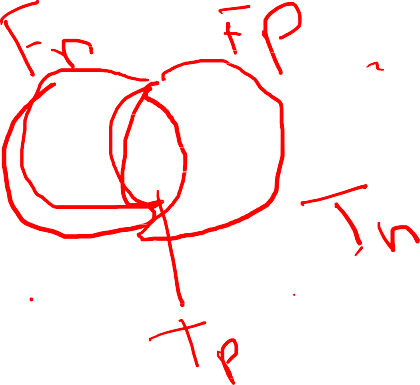 Fn
FP
Tn
Tp